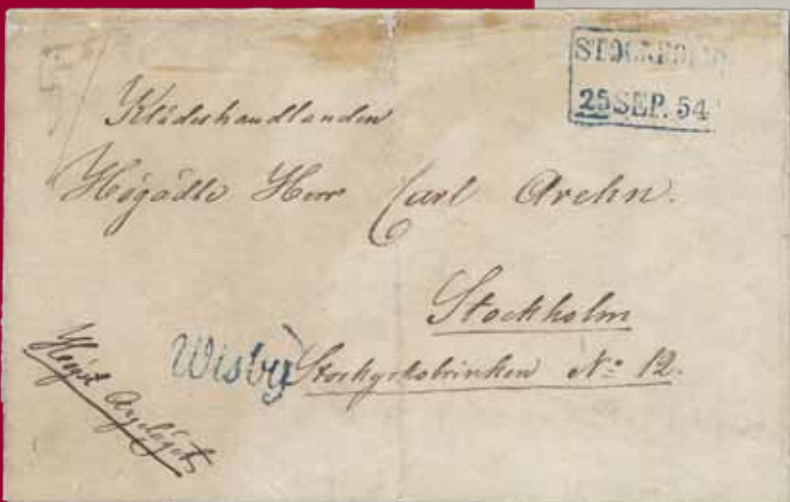 STOCKHOLM
25 SEP. 54
Klädeshandlanden
Högädle Herr Carl Arehn.
Stockholm
Wisby Storkyrkobrinken No 12.
Högst Angeläget